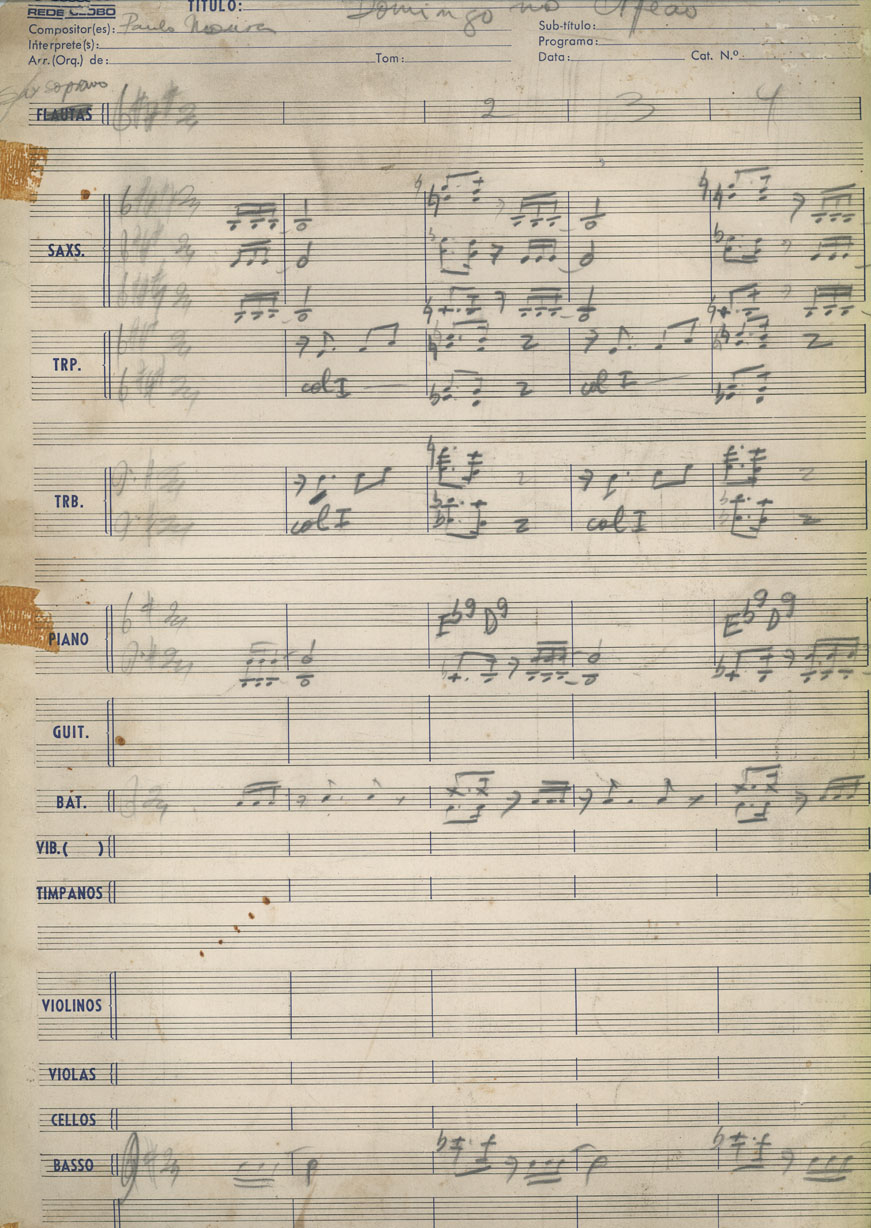 REDE GLOBO
TÍTULO: Domingo no
Compositor(es): Paulo Moura
Sub-título:
Interprete(s):
Programa:
Arr. (Orq.) de: Tom:
Data: Cat. N.º
soprano
FLAUTAS 2 3 4
SAXS.
TRP.
col I col I
TRB.
col I col I
PIANO
Eb9 D9 Eb9 D9
GUIT.
BAT.
VIB.( )
TIMPANOS
VIOLINOS
VIOLAS
CELLOS
BASSO